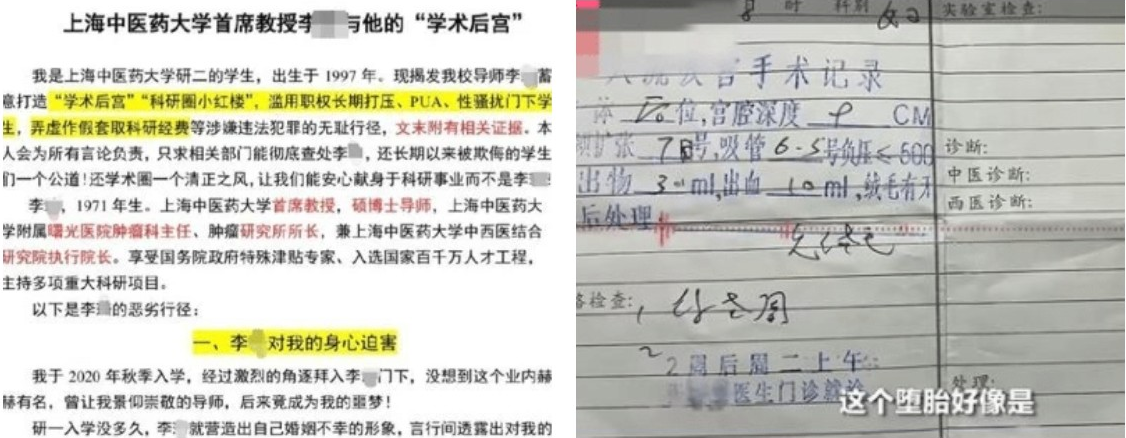 上海中医药大学首席教授李 与他的“学术后宫”
我是上海中医药大学研二的学生，出生于 1997 年。现揭发我校导师李 蓄
意打造“学术后宫”“科研圈小红楼”，滥用职权长期打压、PUA、性骚扰门下学
生，弄虚作假套取科研经费等涉嫌违法犯罪的无耻行径，文末附有相关证据。本
人会为所有言论负责，只求相关部门能彻底查处李 ，还长期以来被欺侮的学生
们一个公道！还学术圈一个清正之风，让我们能安心献身于科研事业而不是李 ！
李 ，1971 年生。上海中医药大学首席教授，硕博士导师，上海中医药大
学附属曙光医院肿瘤科主任、肿瘤研究所所长，兼上海中医药大学中西医结合
研究院执行院长。享受国务院政府特殊津贴专家、入选国家百千万人才工程，
主持多项重大科研项目。
以下是李 的恶劣行径：
一、李 对我的身心迫害
我于 2020 年秋季入学，经过激烈的角逐拜入李 门下，没想到这个业内赫
赫有名，曾让我景仰崇敬的导师，后来竟成为我的噩梦！
研一入学没多久，李 就营造出自己婚姻不幸的形象，言行间透露出对我的
时 科别
实验室检查：
手术记录
位，宫腔深度 9 CM
扩张 7 号，吸管 6-5 号负压≤500
出物 30 ml，出血 10 ml，绒毛有无
后处理
诊断：
中医诊断：
西医诊断：
检查：
2周后周二上午
医生门诊就诊
处理：
这个堕胎好像是